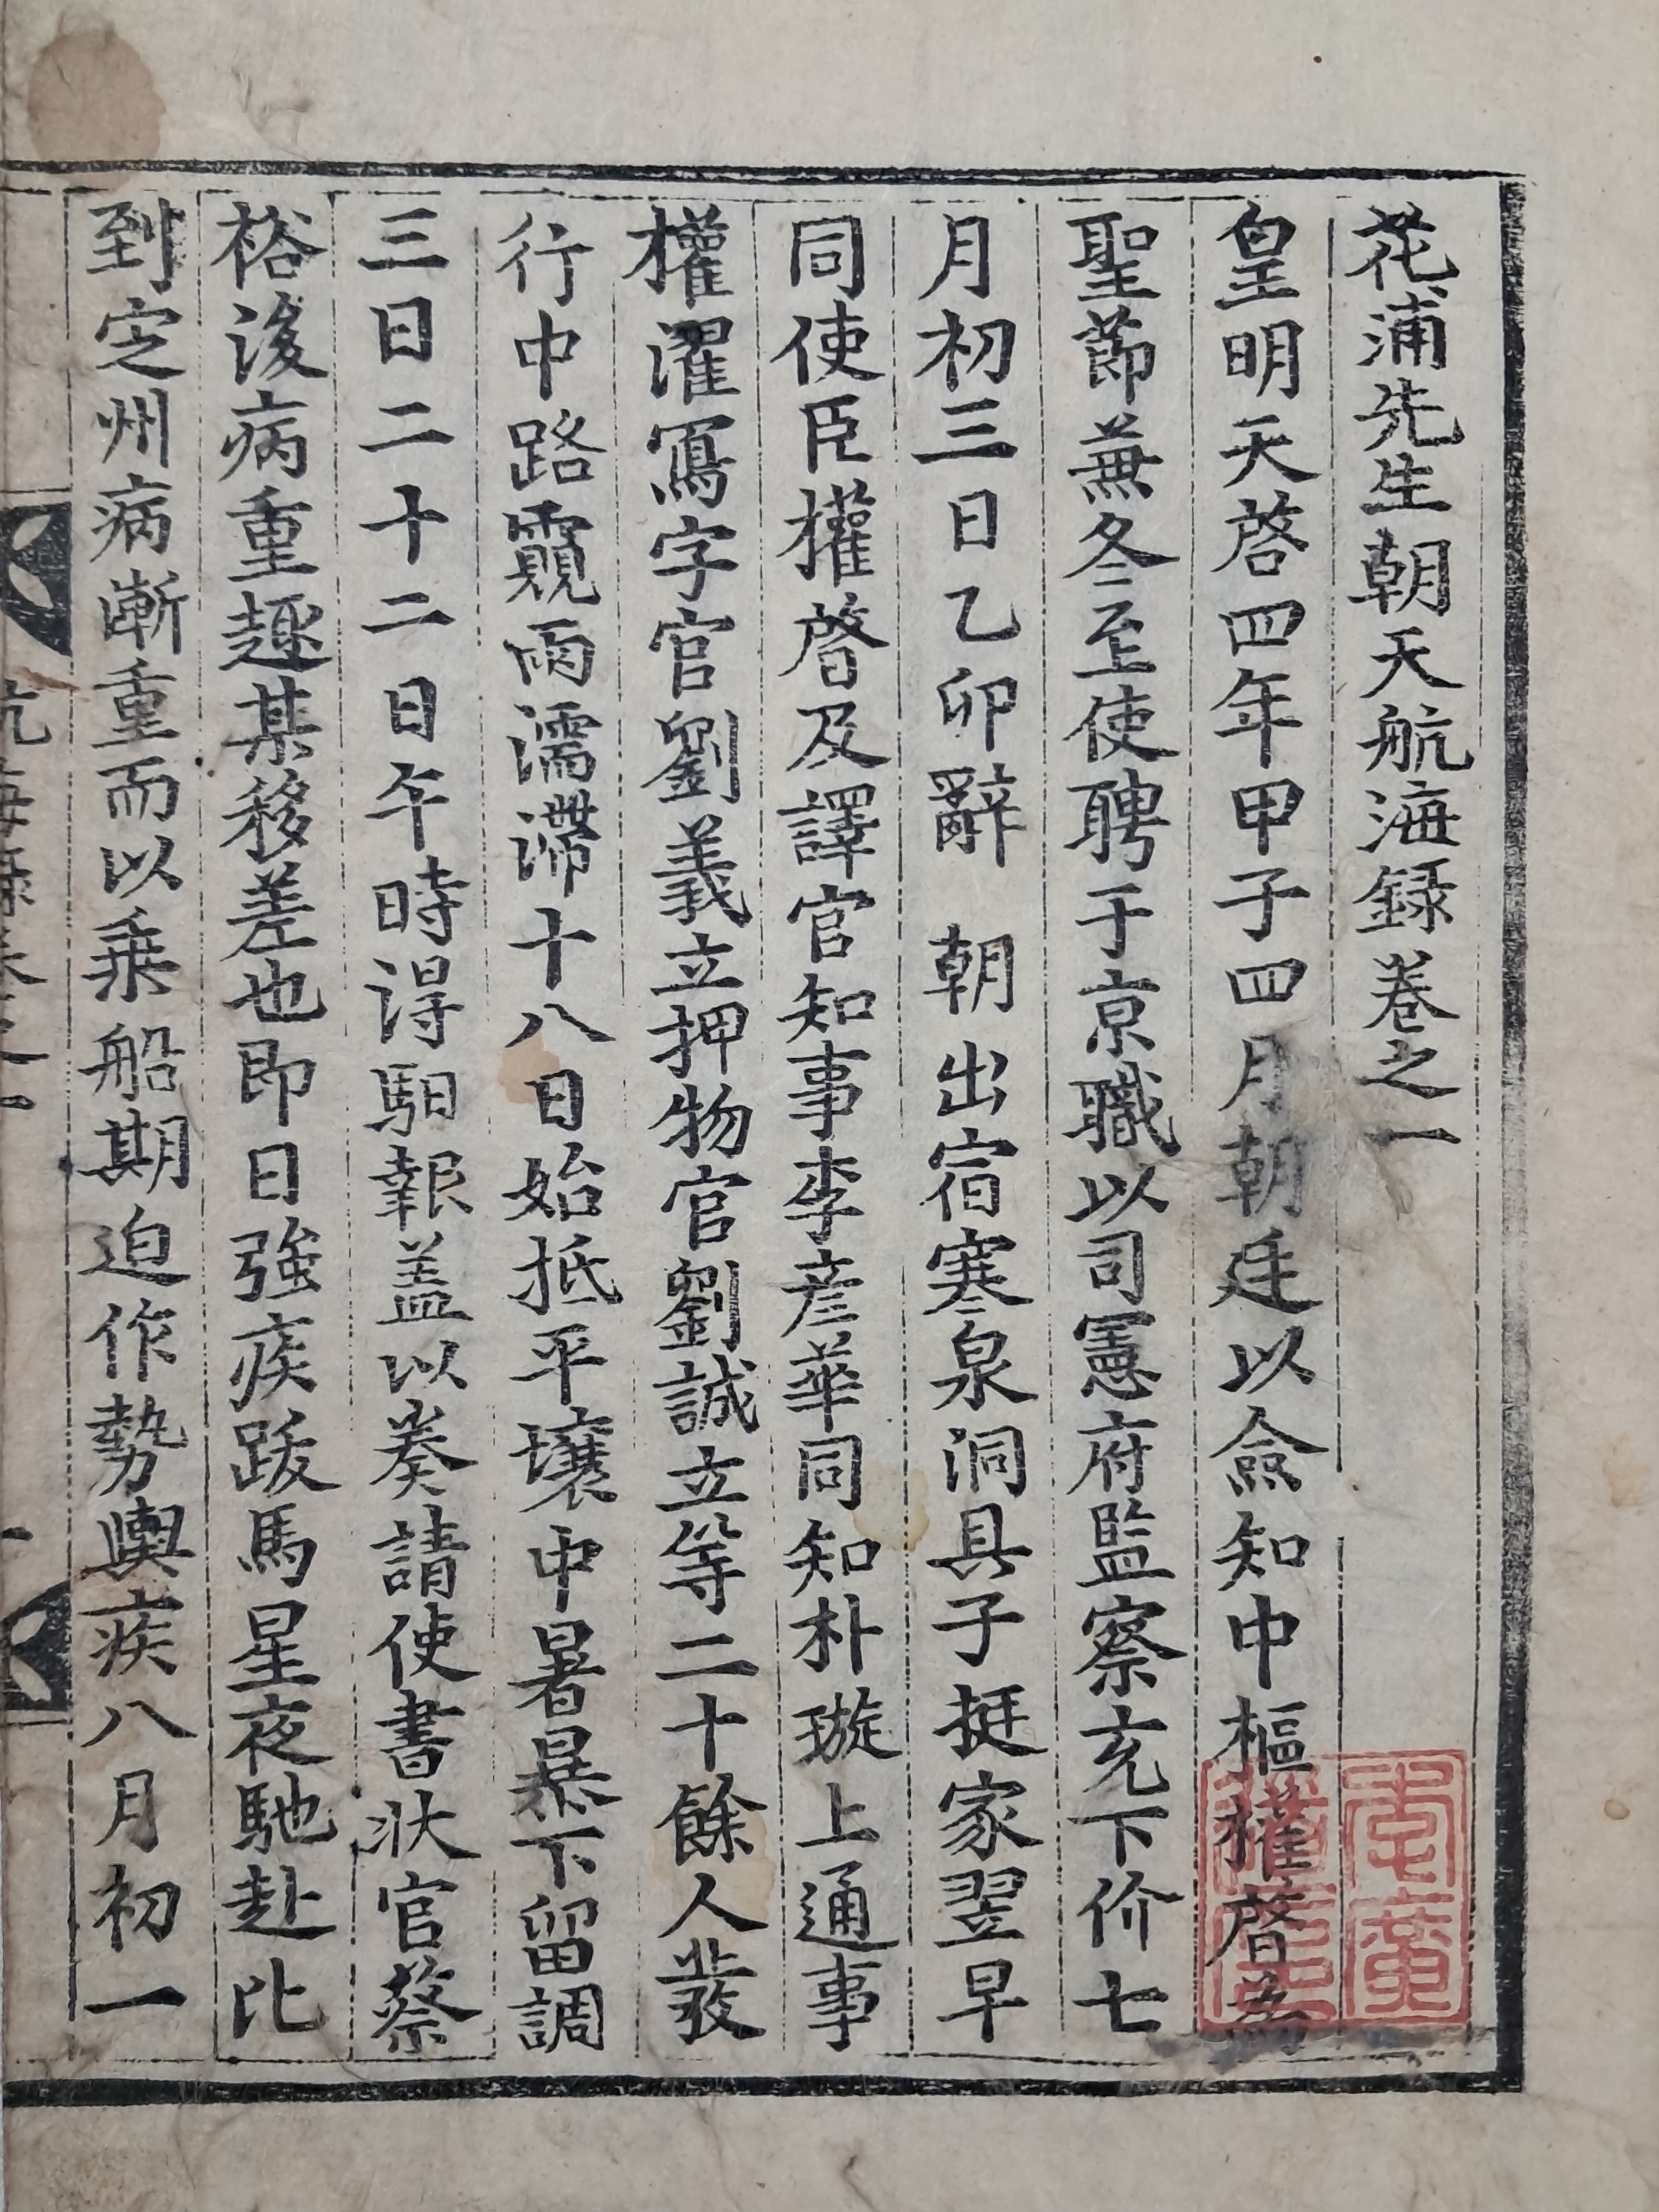 花浦先生朝天航海錄卷之一
皇明天啓四年甲子四月朝廷以僉知中樞權啓為
聖節兼冬至使聘于京職以司憲府監察充下价七
月初三日乙卯辭 朝出宿寒泉洞具子挺家翌早
同使臣權啓及譯官知事李彦華同知朴璇上通事
權濯寫字官劉義立押物官劉誠立等二十餘人發
行中路覯雨濡滯十八日始抵平壤中暑暴下留調
三日二十二日午時得馹報盖以奏請使書狀官蔡
裕後病重趣某移差也即日強疾跋馬星夜馳赴比
到定州病漸重而以乘船期迫作勢輿疾八月初一
航海錄卷之一
一